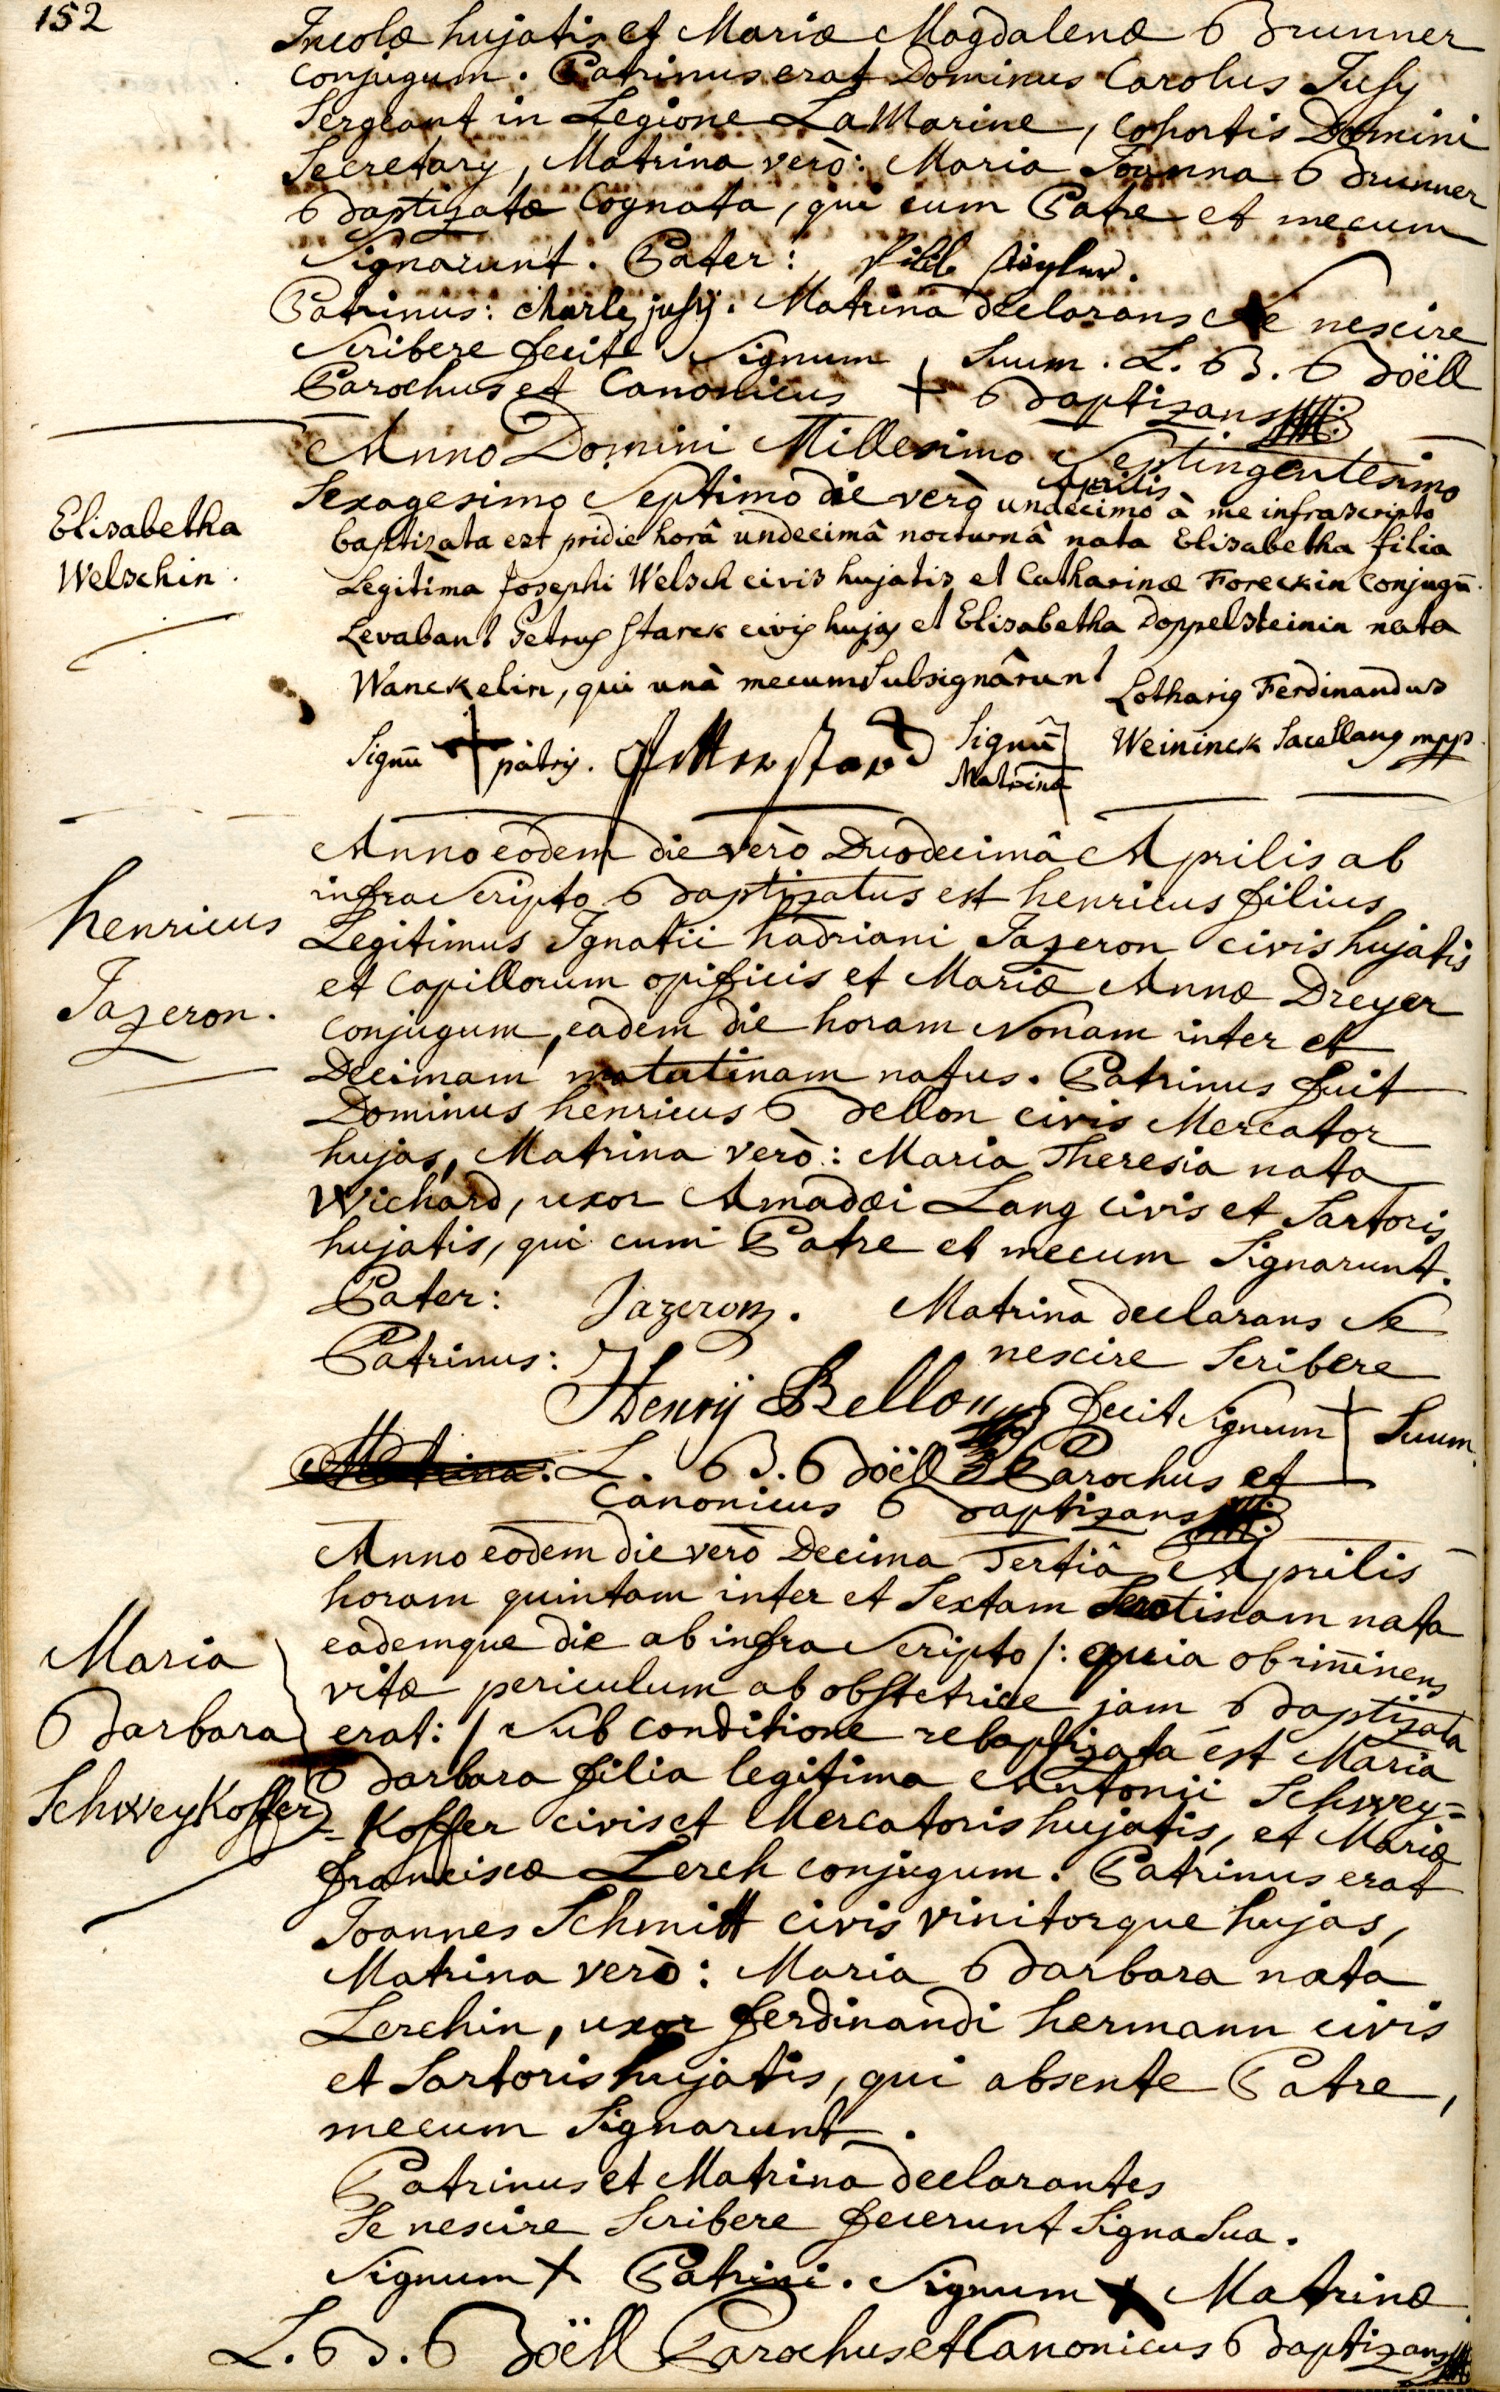 152
Incolæ hujatis et Mariæ Magdalenæ Brunner
conjugum. Patrinus erat Dominus Carolus Jusy
Sergeant in Legione La Marine, cohortis Domini
Secretary, Matrina verò: Maria Joanna Brunner
Baptizatæ Cognata, qui cum Patre et mecum
Signarunt. Pater:
Patrinus: charle jusÿ. Matrina declarans se nescire
Scribere fecit Signum + Suum. L. B. Boëll
Parochus et Canonicus Baptizans
Anno Domini Millesimo Septingentesimo
Sexagesimo Septimo die verò undecimo Aprilis à me infrascripto
Elisabetha
Welschin.
baptizata est pridie horâ undecimâ nocturnâ nata Elisabetha filia
Legitima Josephi Welsch civis hujatis et Catharinæ Foreckin conjugū.
Levabant Petrus Starck civis hujas et Elisabetha Doppelsteinin nata
Wanckelin, qui unà mecum Subsignârunt
Lotharius Ferdinandus
Weininck Sacellanus mpp.
Signū + patris.
Signū
Matrinæ
Anno eodem die verò Duodecimâ Aprilis ab
infra Scripto Baptizatus est henricus filius
henricus
Jazeron.
Legitimus Ignatii hadriani Jazeron civis hujatis
et Capillorum opificis et Mariæ Annæ Dreyer
conjugum, eadem die horam Nonam inter et
Decimam matutinam natus. Patrinus fuit
Dominus henricus Bellon civis Mercator
hujas, Matrina verò: Maria Theresia nata
Wichard, uxor Amadæi Lang civis et Sartoris
hujatis, qui cum Patre et mecum Signarunt.
Pater: Jazeron. Matrina declarans Se
Patrinus: nescire Scribere
Henrÿ Bellon fecit Signum + Suum.
L. B. Boëll Parochus et
Canonicus Baptizans
Anno eodem die verò Decima Tertiâ Aprilis
horam quintam inter et Sextam Serotinam nata
Maria
Barbara
Schweykoffer
eademque die ab infra Scripto /: quia ob im̄inens
vitæ periculum ab obstetrice jam Baptizata
erat: / Sub conditione rebaptizata est Maria
Barbara filia legitima Antonii Schwey=
=koffer civis et Mercatoris hujatis, et Mariæ
franciscæ Lerch conjugum. Patrinus erat
Joannes Schmitt civis vinitorque hujas,
Matrina verò: Maria Barbara nata
Lerchin, uxor ferdinandi hermann civis
et Sartoris hujatis, qui absente Patre,
mecum Signarunt.
Patrinus et Matrina declarantes
Se nescire Scribere fecerunt Signa Sua.
Signum + Patrini. Signum + Matrinæ
L. B. Boëll Parochus et Canonicus Baptizans